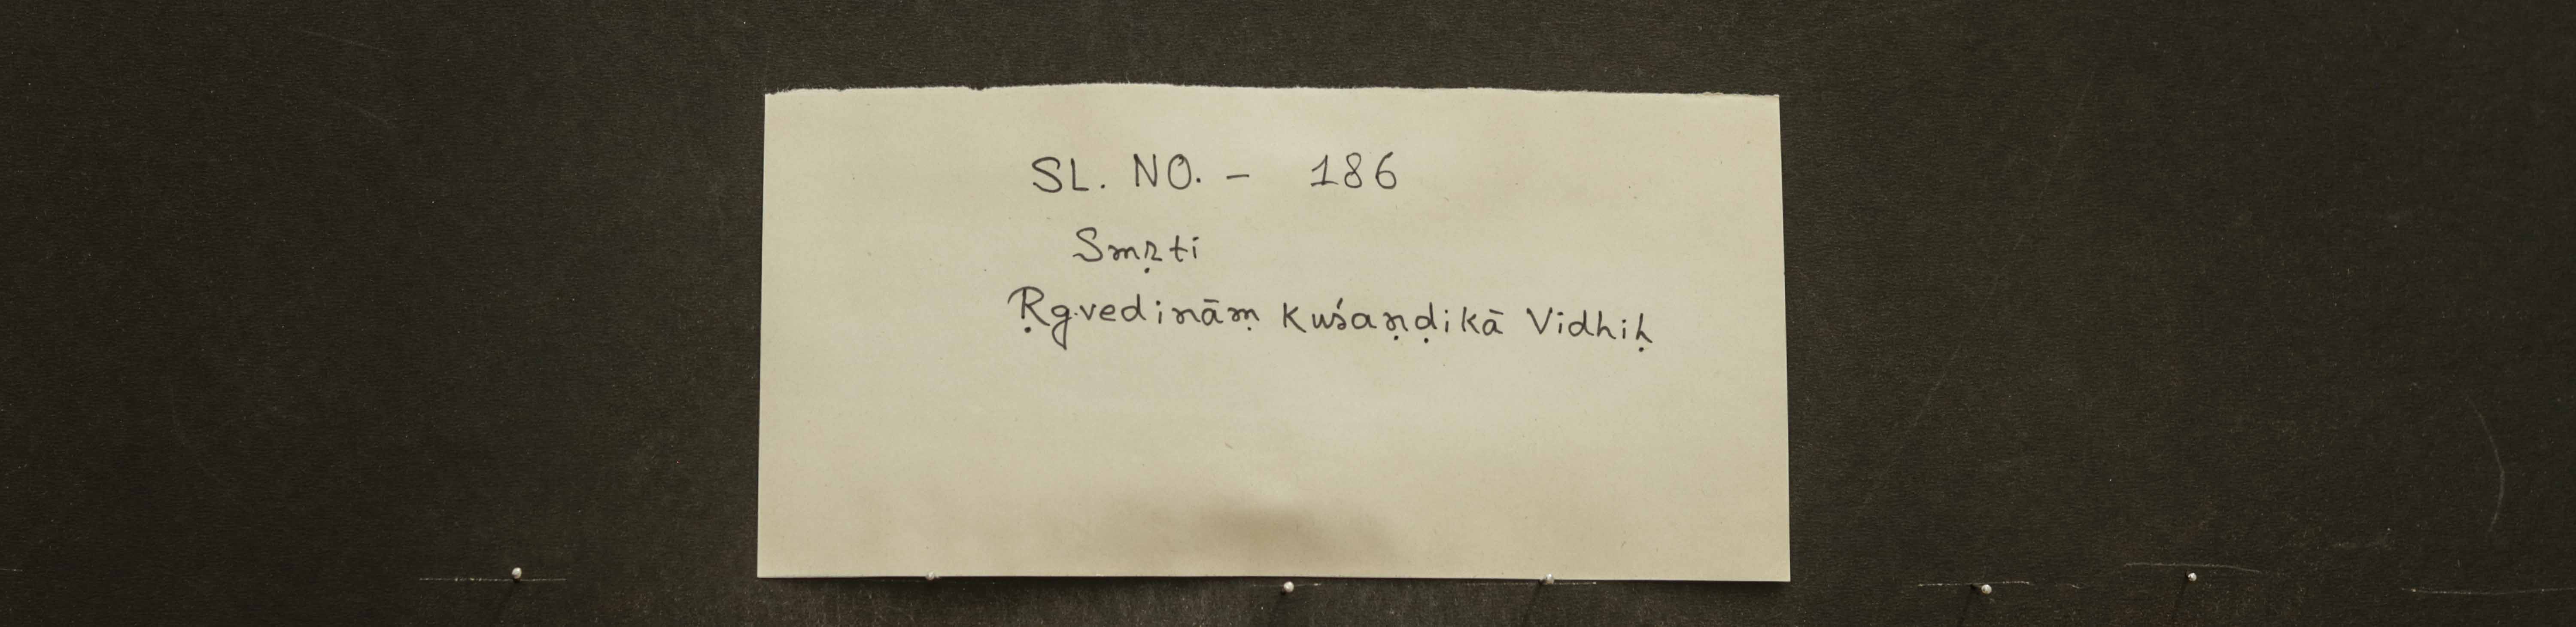 SL. NO. - 186
Smṛti
Ṛgvedināṃ Kuśaṇḍikā Vidhiḥ